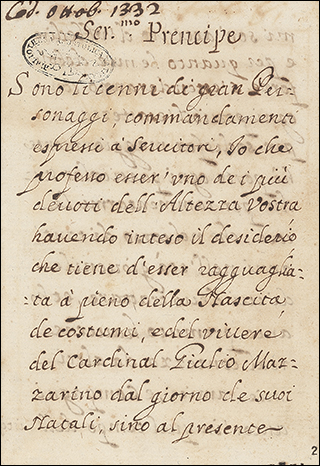 Cod. Ottob. 1332
Ser.mo Prencipe
Sono li cenni di gran Per-
sonaggi, commandamenti
espressi a Seruitori, Io che
professo esser' vno de i più
deuoti dell'Altezza Vostra
hauendo inteso il desiderio
che tiene d'esser ragguaglia-
ta à pieno della Nascita,
de costumi, e del viuere
del Cardinal Giulio Maz-
zarino dal giorno de suoi
Natali, sino al presente
2